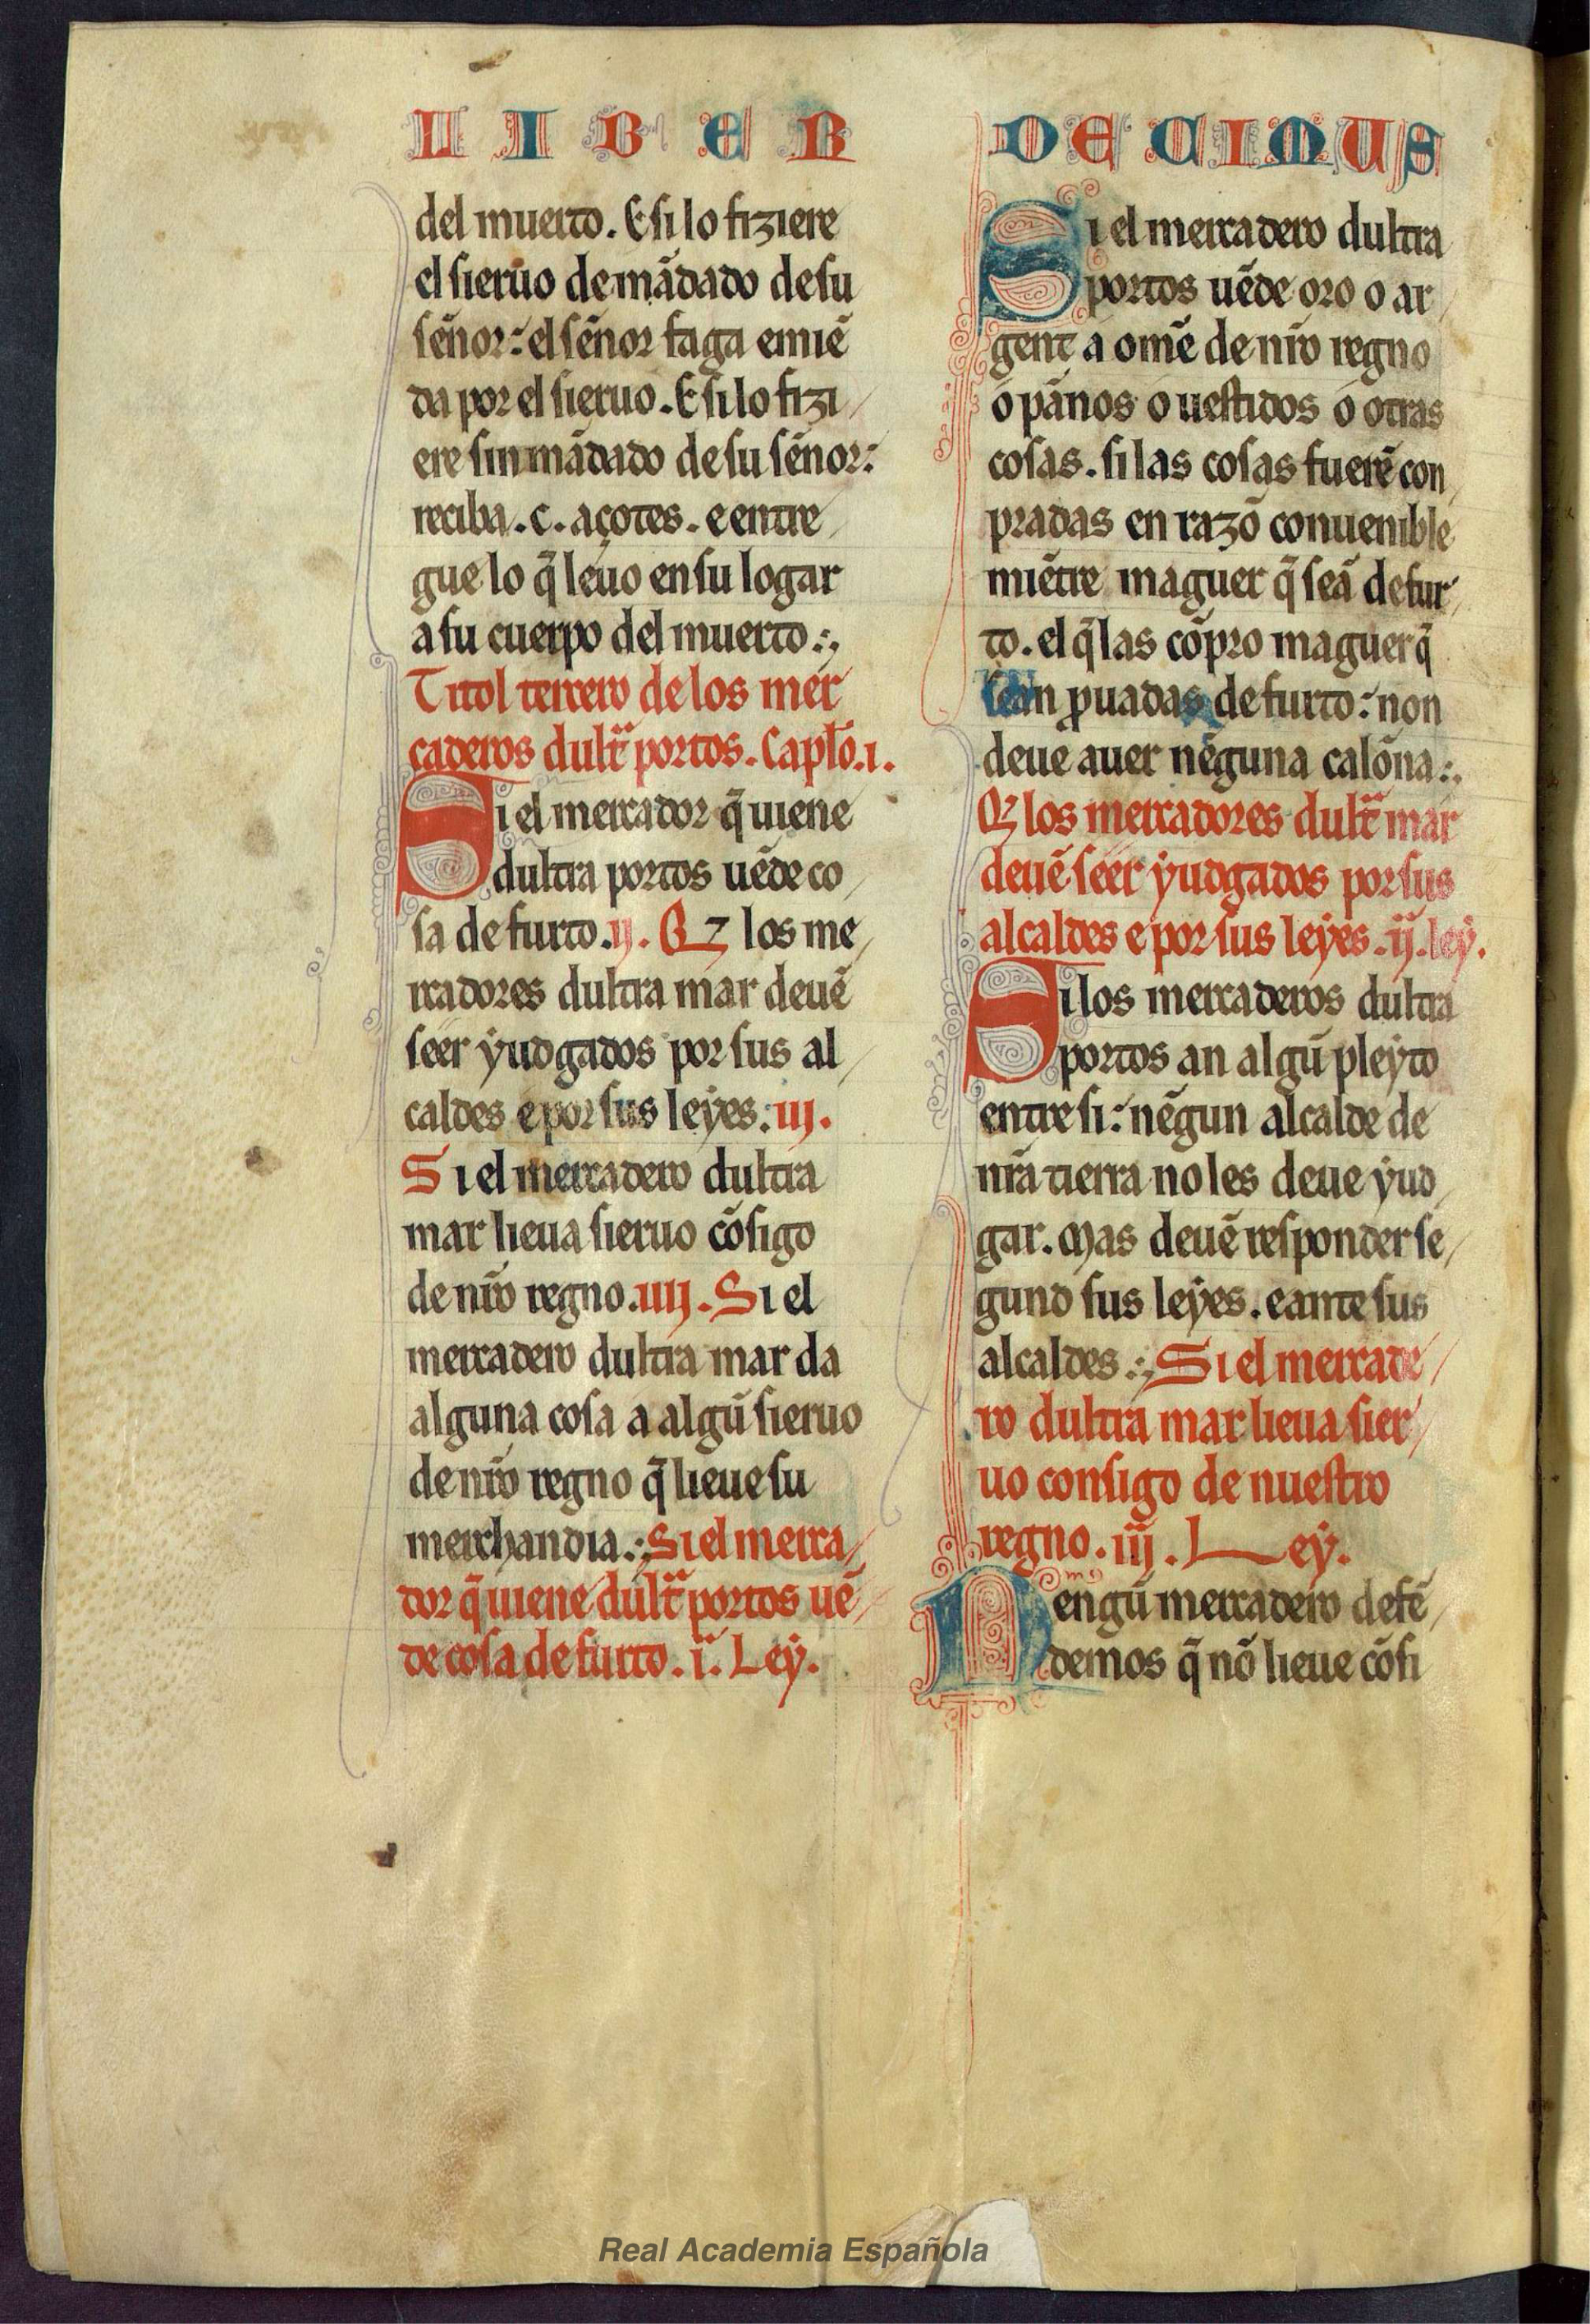 LIBER DECIMUS
del muerto. E si lo fiziere
el sieruo de mãdado de su
sẽnor: el sẽnor faga emiẽ
da por el sieruo. E si lo fizi
ere sin mãdado de su sẽnor:
reciba .c. açotes. e entre
gue lo q̃ leuo en su logar
a su cuerpo del muerto:,
Titol tercero de los mer
caderos dult̃ portos. Capl̃o.i.
Si el mercador q̃ uiene
dultra portos uẽde co
sa de furto.ij. Qz los me
rcadores dultra mar deuẽ
seer yudgados por sus al
caldes e por sus leyes: iij.
Si el mercadero dultra
mar lieua sieruo cõsigo
de nr̃o regno.iiij. Si el
mercadero dultra mar da
alguna cosa a algũ sieruo
de nr̃o regno q̃ lieue su
merchandia:, Si el merca
dor q̃ uiene dult̃ portos uẽ
de cosa de furto. i. Ley.
Si el mercadero dultra
portos uẽde oro o ar
gent a omẽ de nr̃o regno
o pãnos o uestidos o otras
cosas. si las cosas fuerẽ con
pradas en razõ conuenible
miẽtre maguer q̃ seã de fur
to. el q̃ las cõpro maguer q̃
sean ꝓuadas de furto: non
deue auer nẽguna calõna:.
Qz los mercadores dult̃ mar
deuẽ seer yudgados por sus
alcaldes e por sus leyes. ij. ley.
Si los mercaderos dultra
portos an algũ pleyto
entre si: nẽgun alcalde de
nr̃a tierra no les deue yud
gar. Mas deuẽ responder se
gund sus leyes. e ante sus
alcaldes:, Si el mercade
ro dultra mar lieua sier
uo consigo de nuestro
regno. iij. Ley.
Nengũ mercadero defẽ
demos q̃ nõ lieue cõsi
Real Academia Española